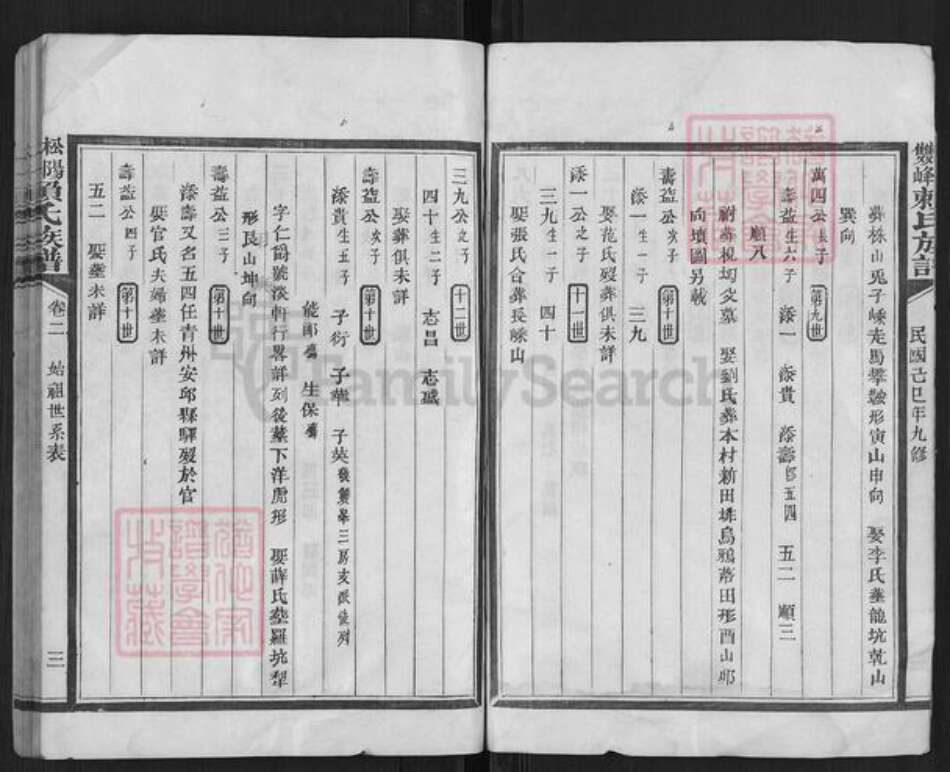 雙峰賴氏族譜
民國己巳年九修
葬株山兎子崠走馬攀鞍形寅山申向　娶李氏葬龍坑乾山
巽向
萬四公長子　第九世
壽益生六子　添一　添貴　添壽即五四　五二　順三
順八
附葬視均父墓　娶劉氏葬本村新田垅烏鴉落田形酉山卯
向墳圖另載
壽益公長子　第十世
添一生一子　三九
娶范氏歿葬俱未詳
添一公之子　十一世
三九生一子　四十
娶張氏合葬長嵊山
三九公之子　十二世
四十生二子　志昌　志彧
娶葬俱未詳
壽益公次子　第十世
添貴生五子　子衍　子華　子英後雙峯三房支派徒列
能郎殤　生保殤
字仁爵號淡軒行畧詳列後墓下洋虎形　娶薛氏葬羅坑犁
形艮山坤向
壽益公三子　第十世
添壽又名五四任青州安邱縣驛歿於官
娶官氏夫婦葬未詳
壽益公四子　第十世
五二　娶葬未詳
松陽賴氏族譜
卷二
始祖世系表
三
譜學會
收藏
FamilySearch